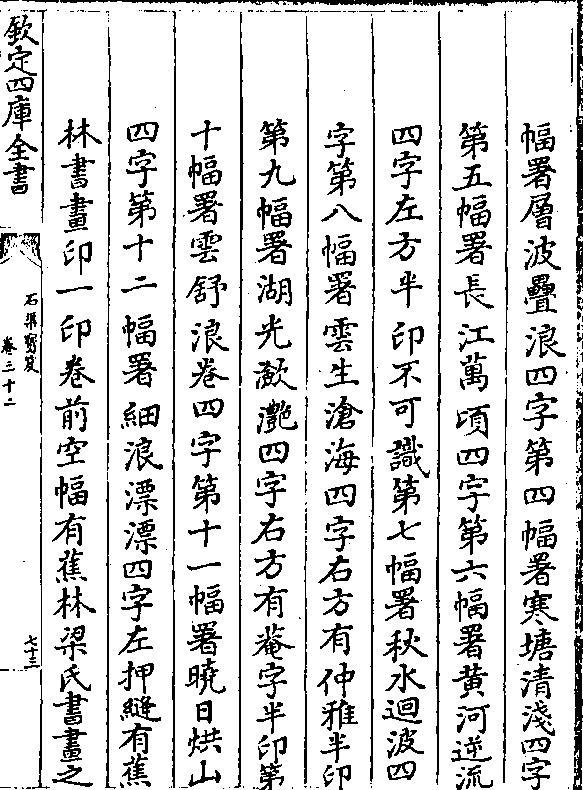 幅署層波疊浪四字第四幅署寒塘清淺四字
第五幅署長江萬頃四字第六幅署黄河逆流
四字左方半印不可識第七幅署秋水迴波四
字第八幅署雲生滄海四字右方有仲雅半印
第九幅署湖光瀲灔四字右方有菴字半印第
十幅署雲舒浪卷四字第十一幅署曉日烘山
四字第十二幅署細浪漂漂四字左押縫有蕉
林書畫印一印卷前空幅有蕉林梁氏書畫之
欽定四庫全書
石渠寶笈
卷三十二
七十三